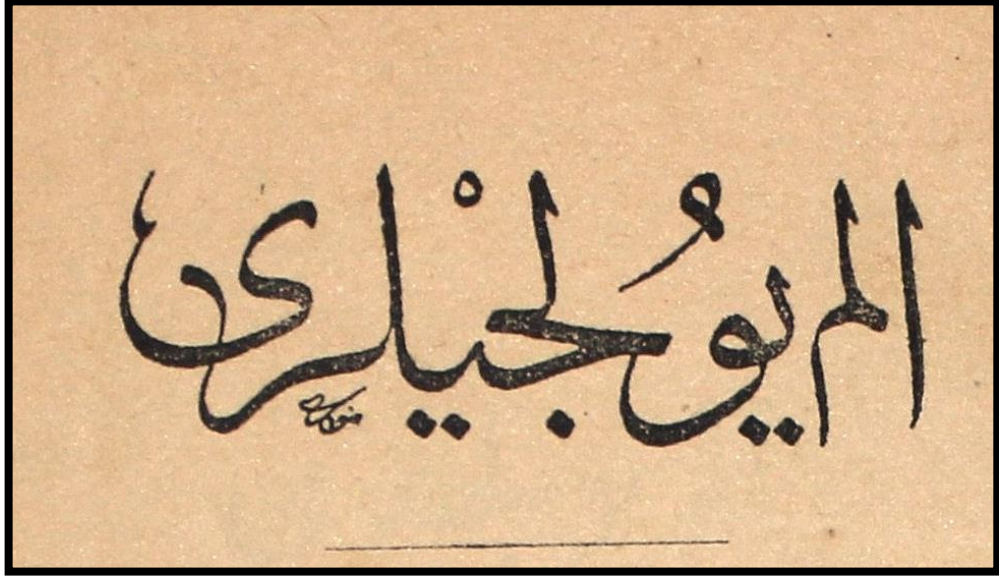 الم يُولْجيلرى